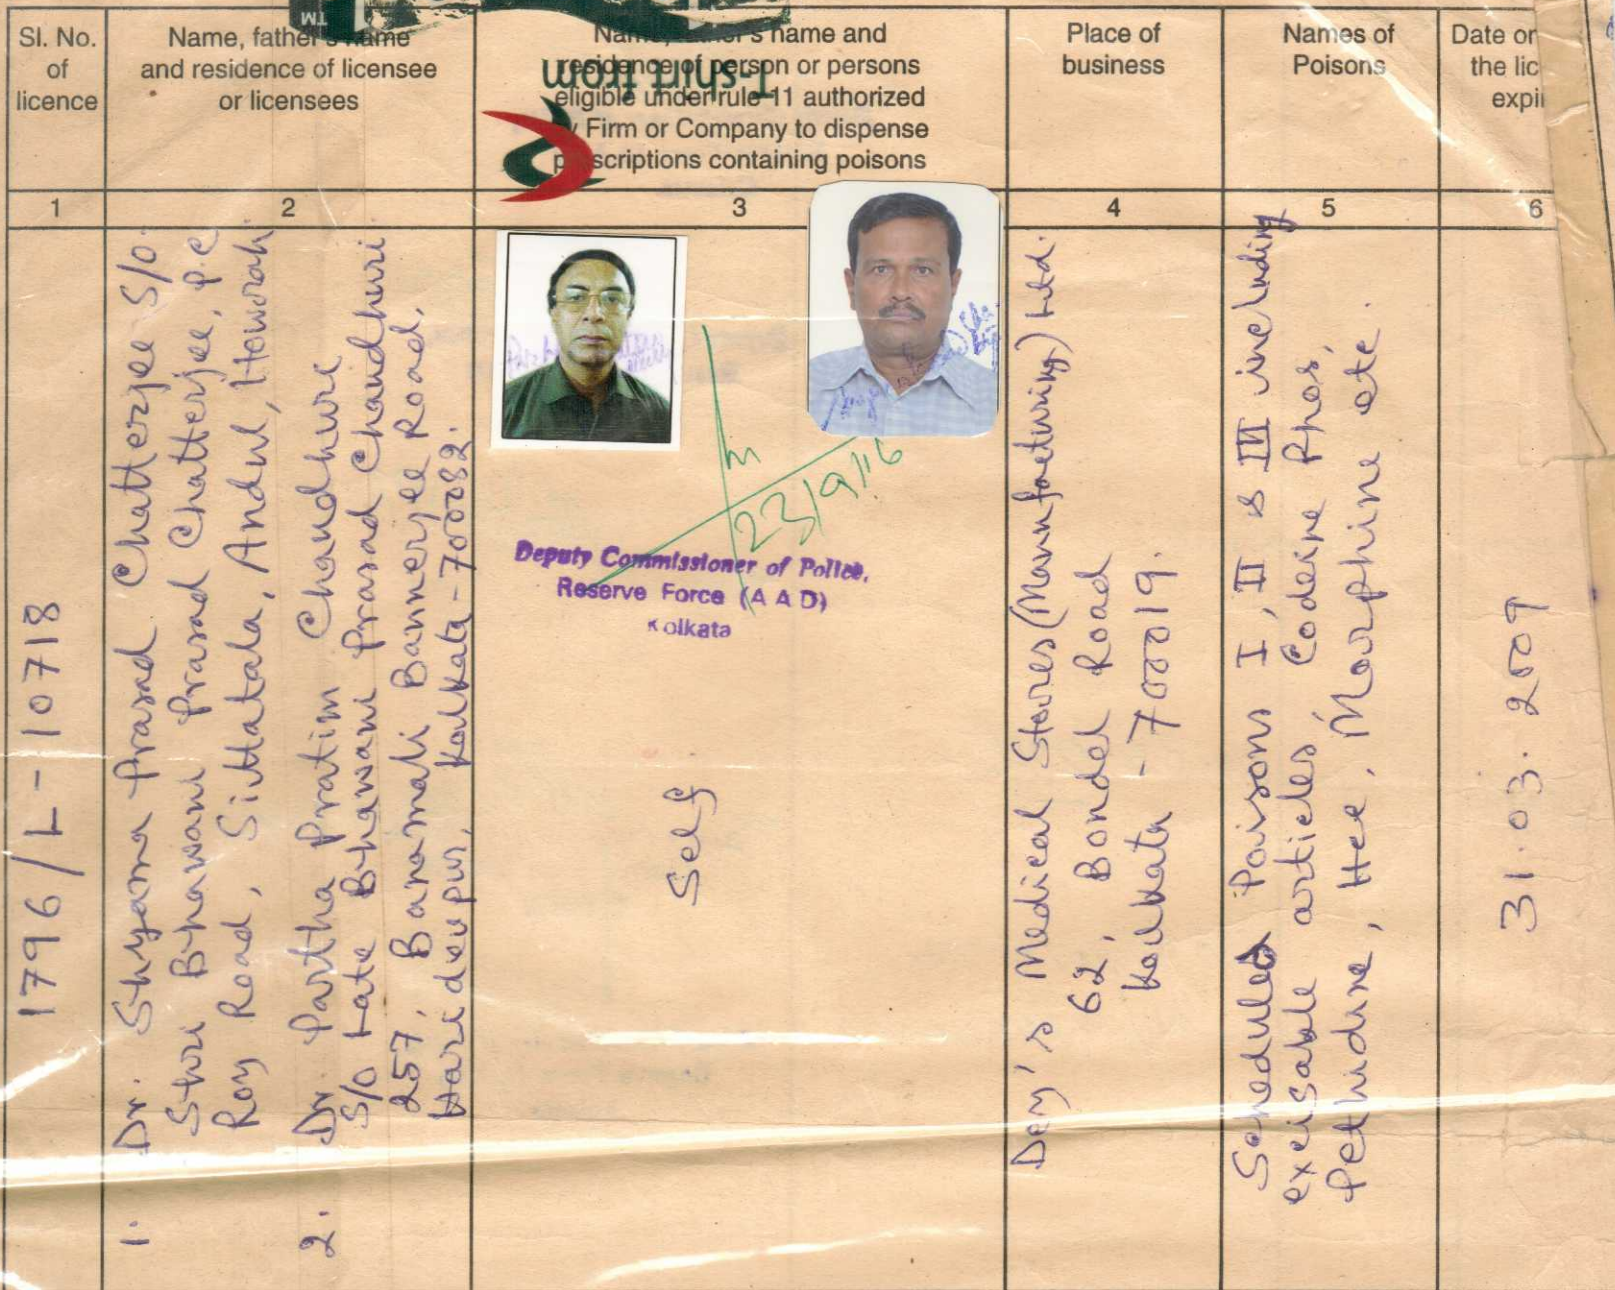 Sl. No.
of
licence
Name, father's name
and residence of licensee
or licensees
Name, father's name and
residence of person or persons
eligible under rule 11 authorized
by Firm or Company to dispense
prescriptions containing poisons
Place of
business
Names of
Poisons
Date on
the lic
expir
TM
T-shirt from
1
2
3
4
5
6
1796/L-10718
1. Dr. Shyama Prasad Chatterjee S/o.
Shri Bhawani Prasad Chatterjee, P.C
Roy Road, Sittatala, Andul, Howrah.
2. Dr Partha Pratim Chaudhuri
S/o Late Bhawani Prasad Chaudhuri
257, Banamali Bannerjee Road,
Haridevpur, Kolkata-700082.
23/9/16
Deputy Commissioner of Police,
Reserve Force (A A D)
Kolkata
Self
Dey's Medical Stores (Manufacturing) Ltd.
62, Bondel Road
Kolkata - 700019.
Scheduled Poisons I, II & III including
excisable articles, Codeine Phos,
Pethidine, Hee, Morphine etc.
31.03.2009